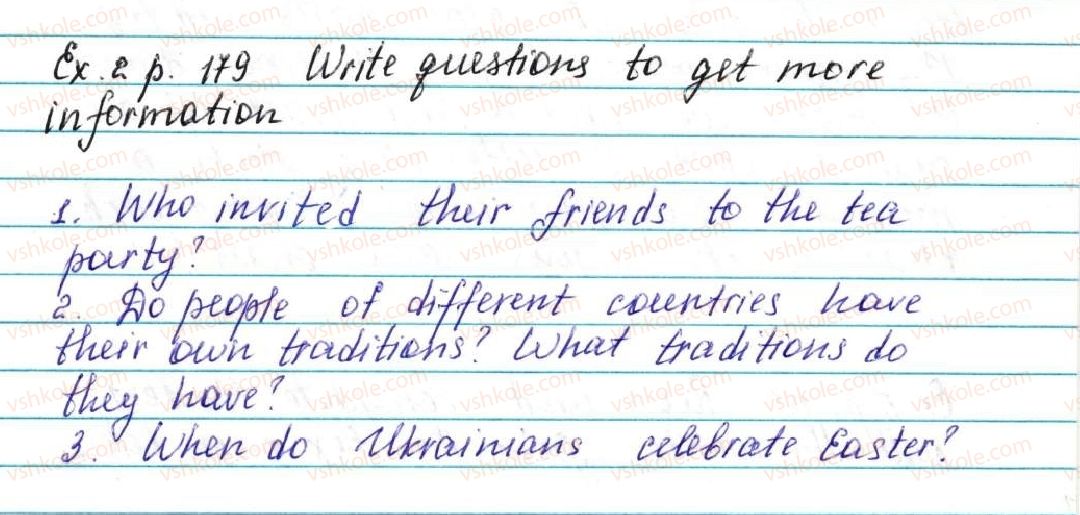 Ex. 2 p. 179 Write questions to get more
information
1. Who invited their friends to the tea
party?
2. Do people of different countries have
their own traditions? What traditions do
they have?
3. When do Ukrainians celebrate Easter?
vshkole.com